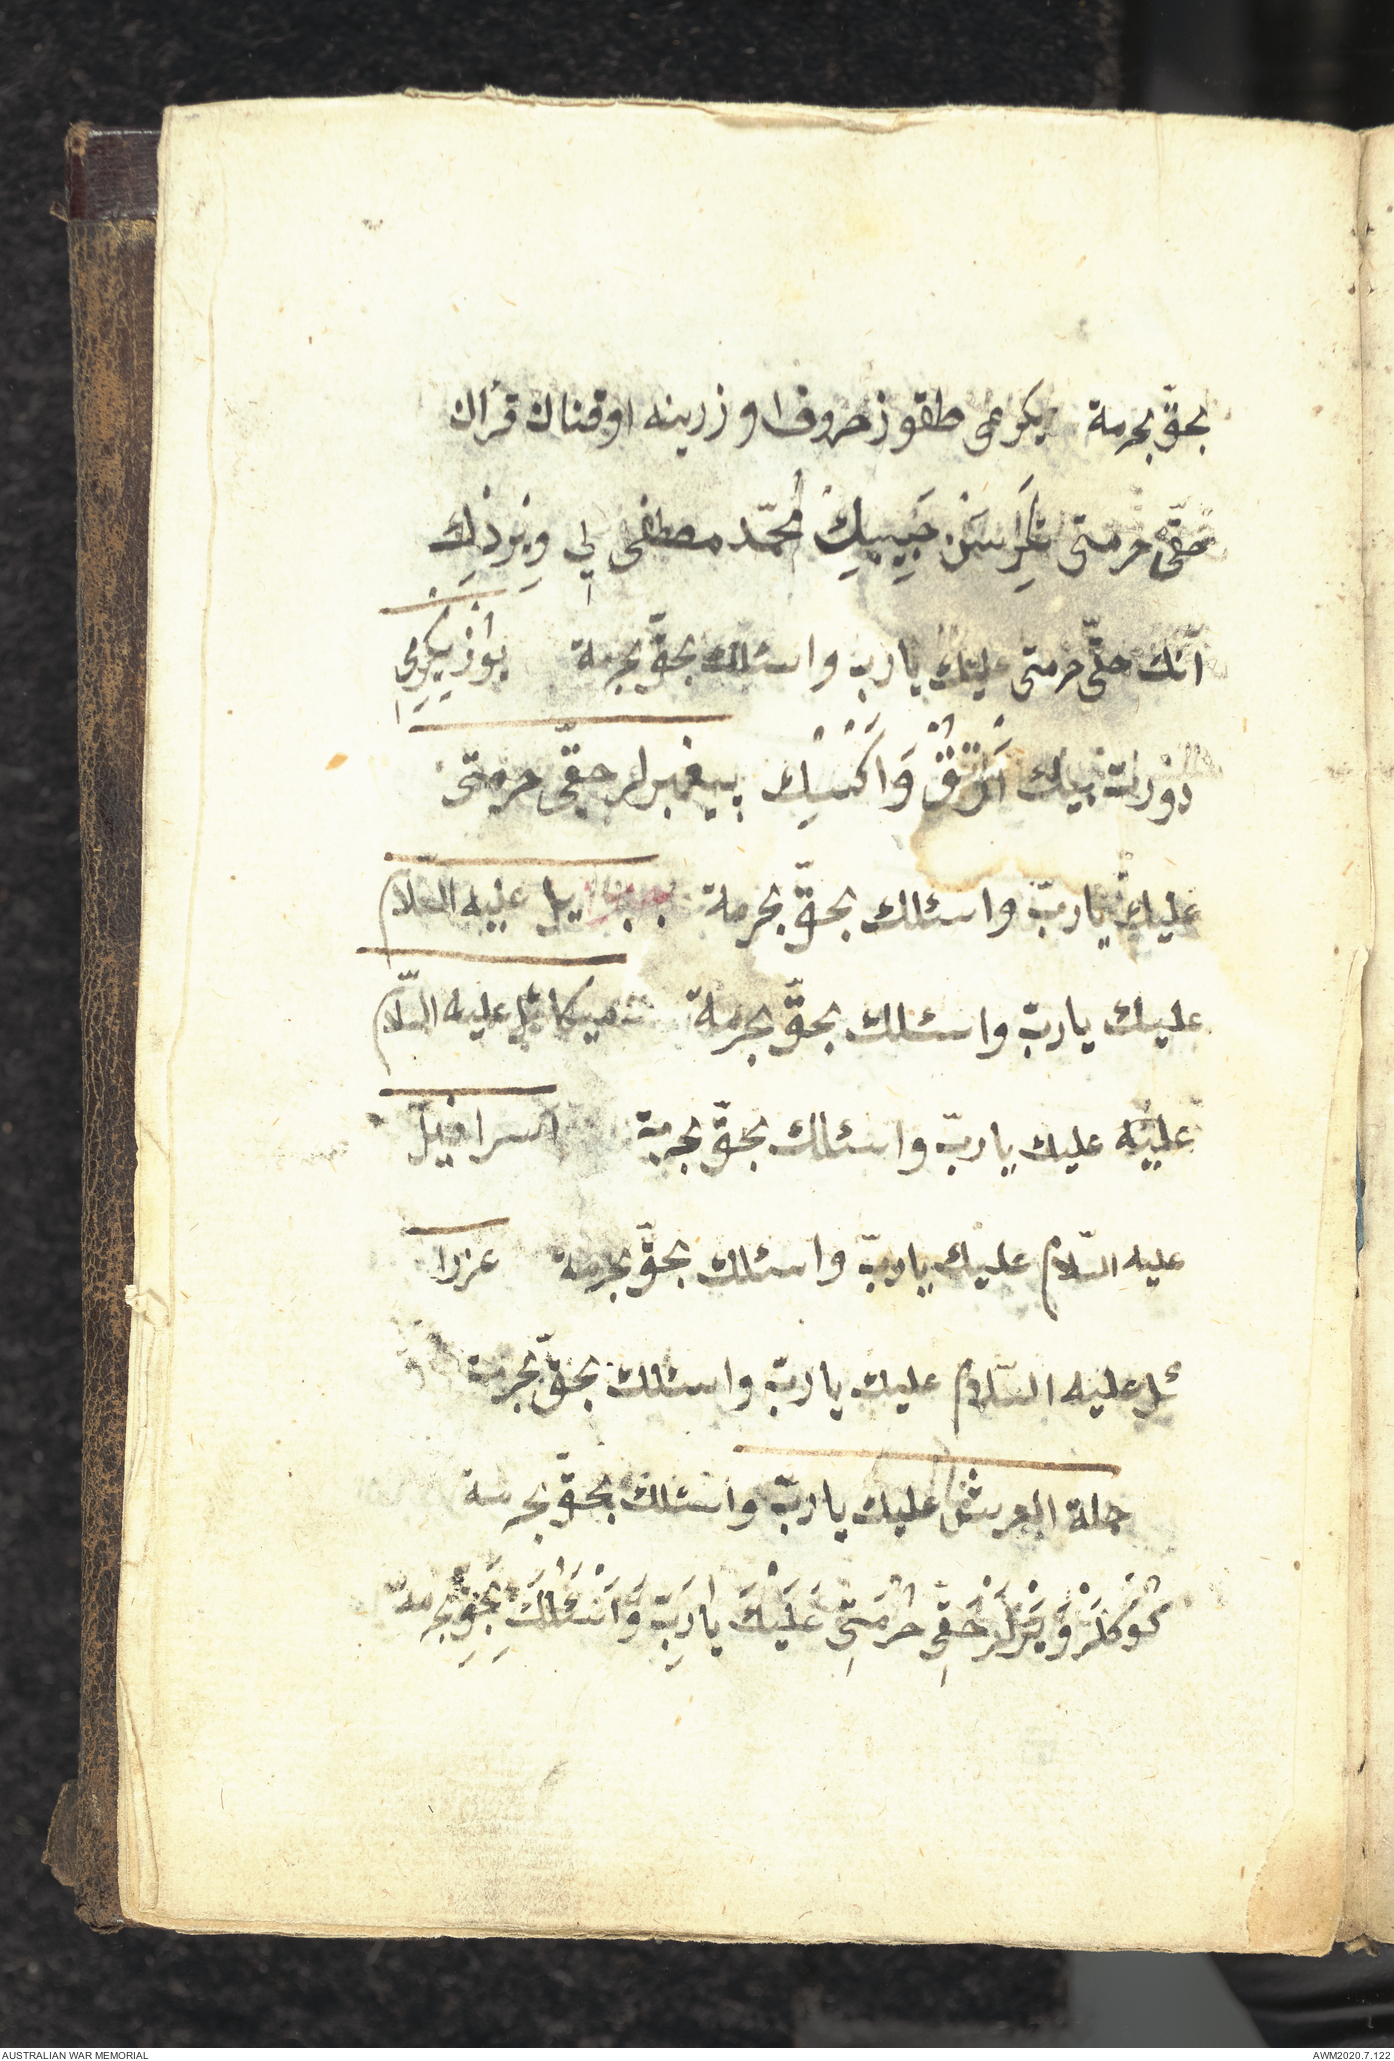 بحقّ بحرمة يكرمى طقوز حروف اوزرينه اوقنان قرأن
حقّى حرمتى تكرسن حبيبك محمّد مصطفى
انك حقّى حرمتى عليك يارب واسئلك بحقّ بحرمة يوز يكرمى
دورت بيك پيغمبرلر حقّى حرمتى
عليك ياربّ واسئلك بحقّ بحرمة جبرايل عليه السّلام
عليك ياربّ واسئلك بحقّ بحرمة ميكائل عليه السّلام
عليه عليك ياربّ واسئلك بحقّ بحرمة اسرافيل
عليه السّلام عليك ياربّ واسئلك بحقّ بحرمة عزرا
ئل عليه السّلام عليك ياربّ واسئلك بحقّ بحرمة
حملة العرش عليك ياربّ واسئلك بحقّ بحرمة
كوكلر ويرلر حقى حرمتى عليك يارب واسئلك بحق بحرمة
AUSTRALIAN WAR MEMORIAL
AWM2020.7.122